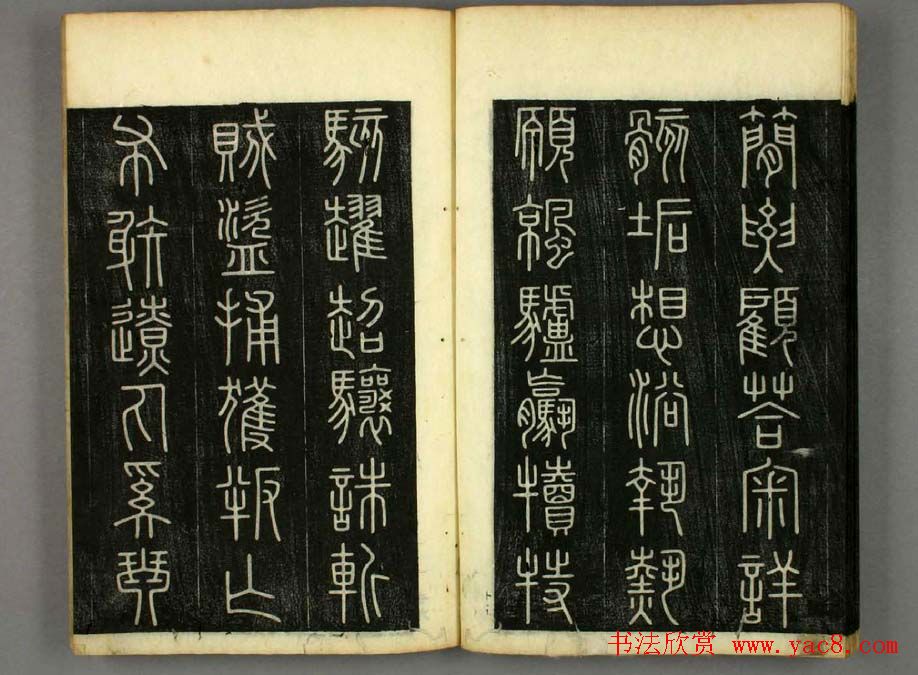 簡要顧荅宷詳
骸垢想浴執熱
願涼驢驘犢特
駭趯超驤誅斬
賊盜捕獲叛亡
布射遼丸嵇琴
书法欣赏 www.yac8.com